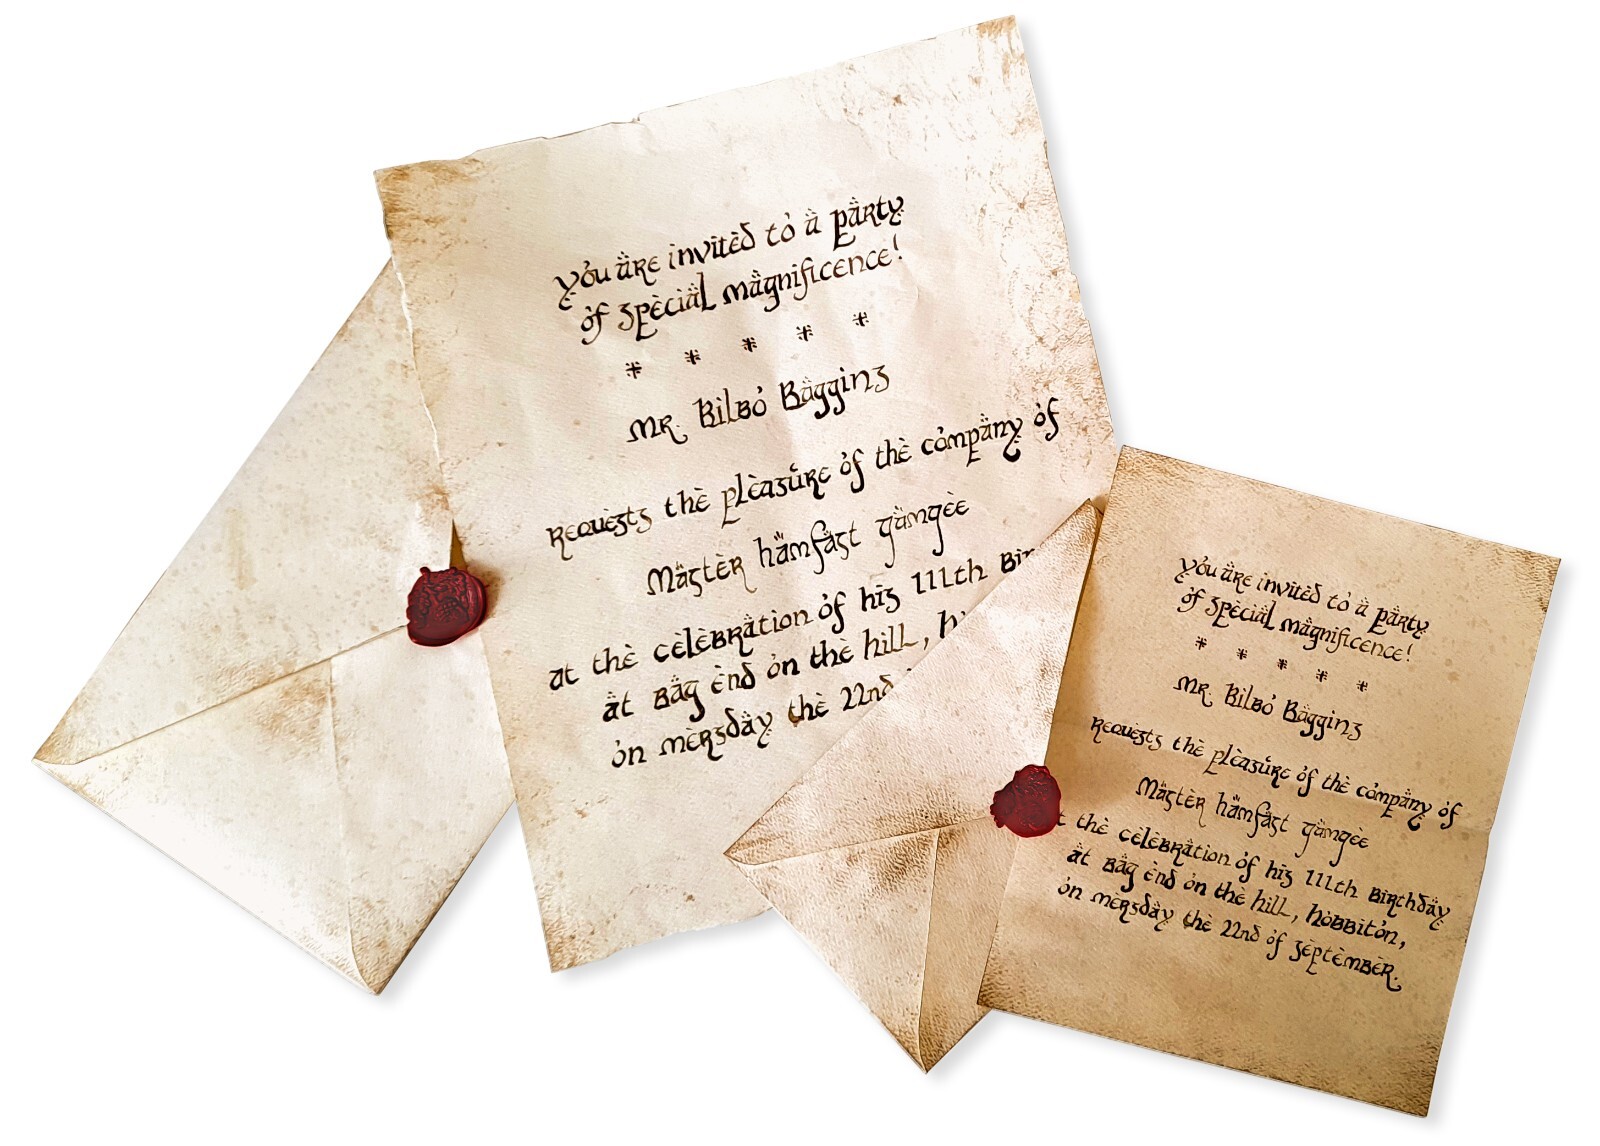 You are invited to a party
of special magnificence!
* * * * *
Mr. Bilbo Baggins
requests the pleasure of the company of
Master hamfast gamgee
at the celebration of his 111th Bir
at Bag end on the hill, h
on mersday the 22nd
You are invited to a party
of special magnificence!
* * * * *
Mr. Bilbo Baggins
requests the pleasure of the company of
Master hamfast gamgee
t the celebration of his 111th Birthday
at Bag end on the hill, hobbiton,
on mersday the 22nd of september.